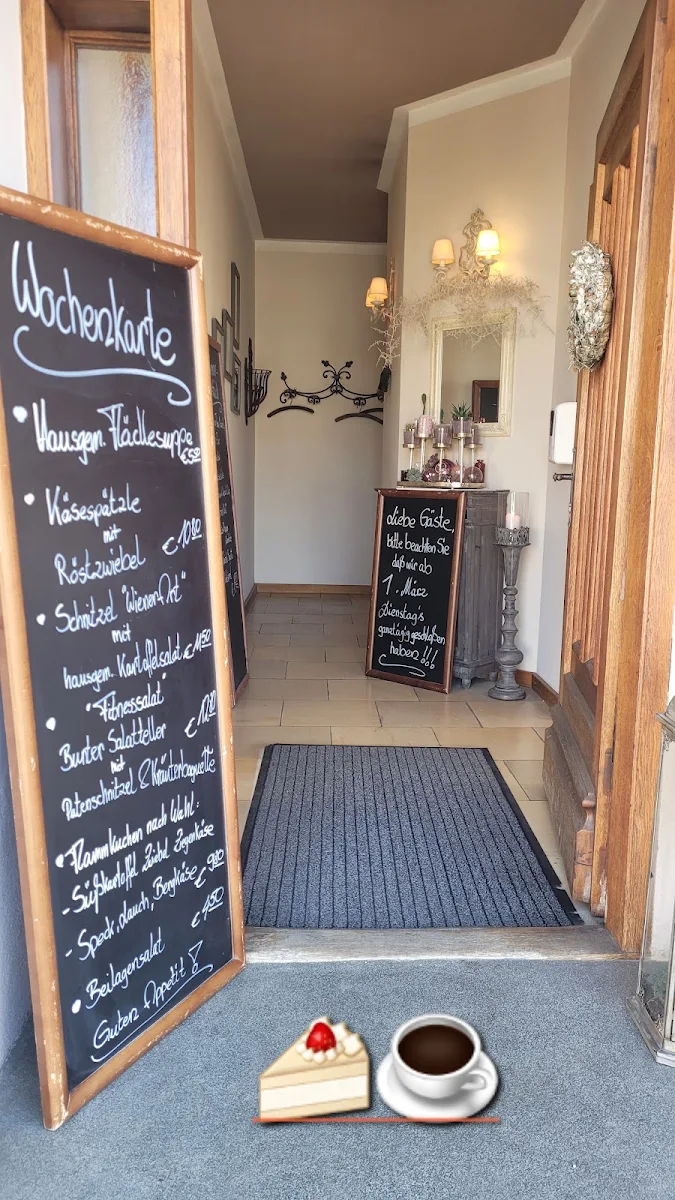 Wochenkarte
Hausgem. Flädlesuppe
€ 5,50
Käsespätzle
mit
Röstzwiebel € 10,80
Schnitzel "Wiener Art"
mit
hausgem. Kartoffelsalat € 11,50
"Fitnessalat"
Bunter Salatteller € 12,80
mit
Putenschnitzel & Kräuterbaguette
Flammkuchen nach Wahl:
- Süßkartoffel Zwiebel Ziegenkäse
- Speck, Lauch, Bergkäse € 9,80
Beilagensalat € 4,50
Guten Appetit !
Liebe Gäste,
bitte beachten Sie
daß wir ab
1. März
Dienstag's
ganztägig geschloßen
haben !!!